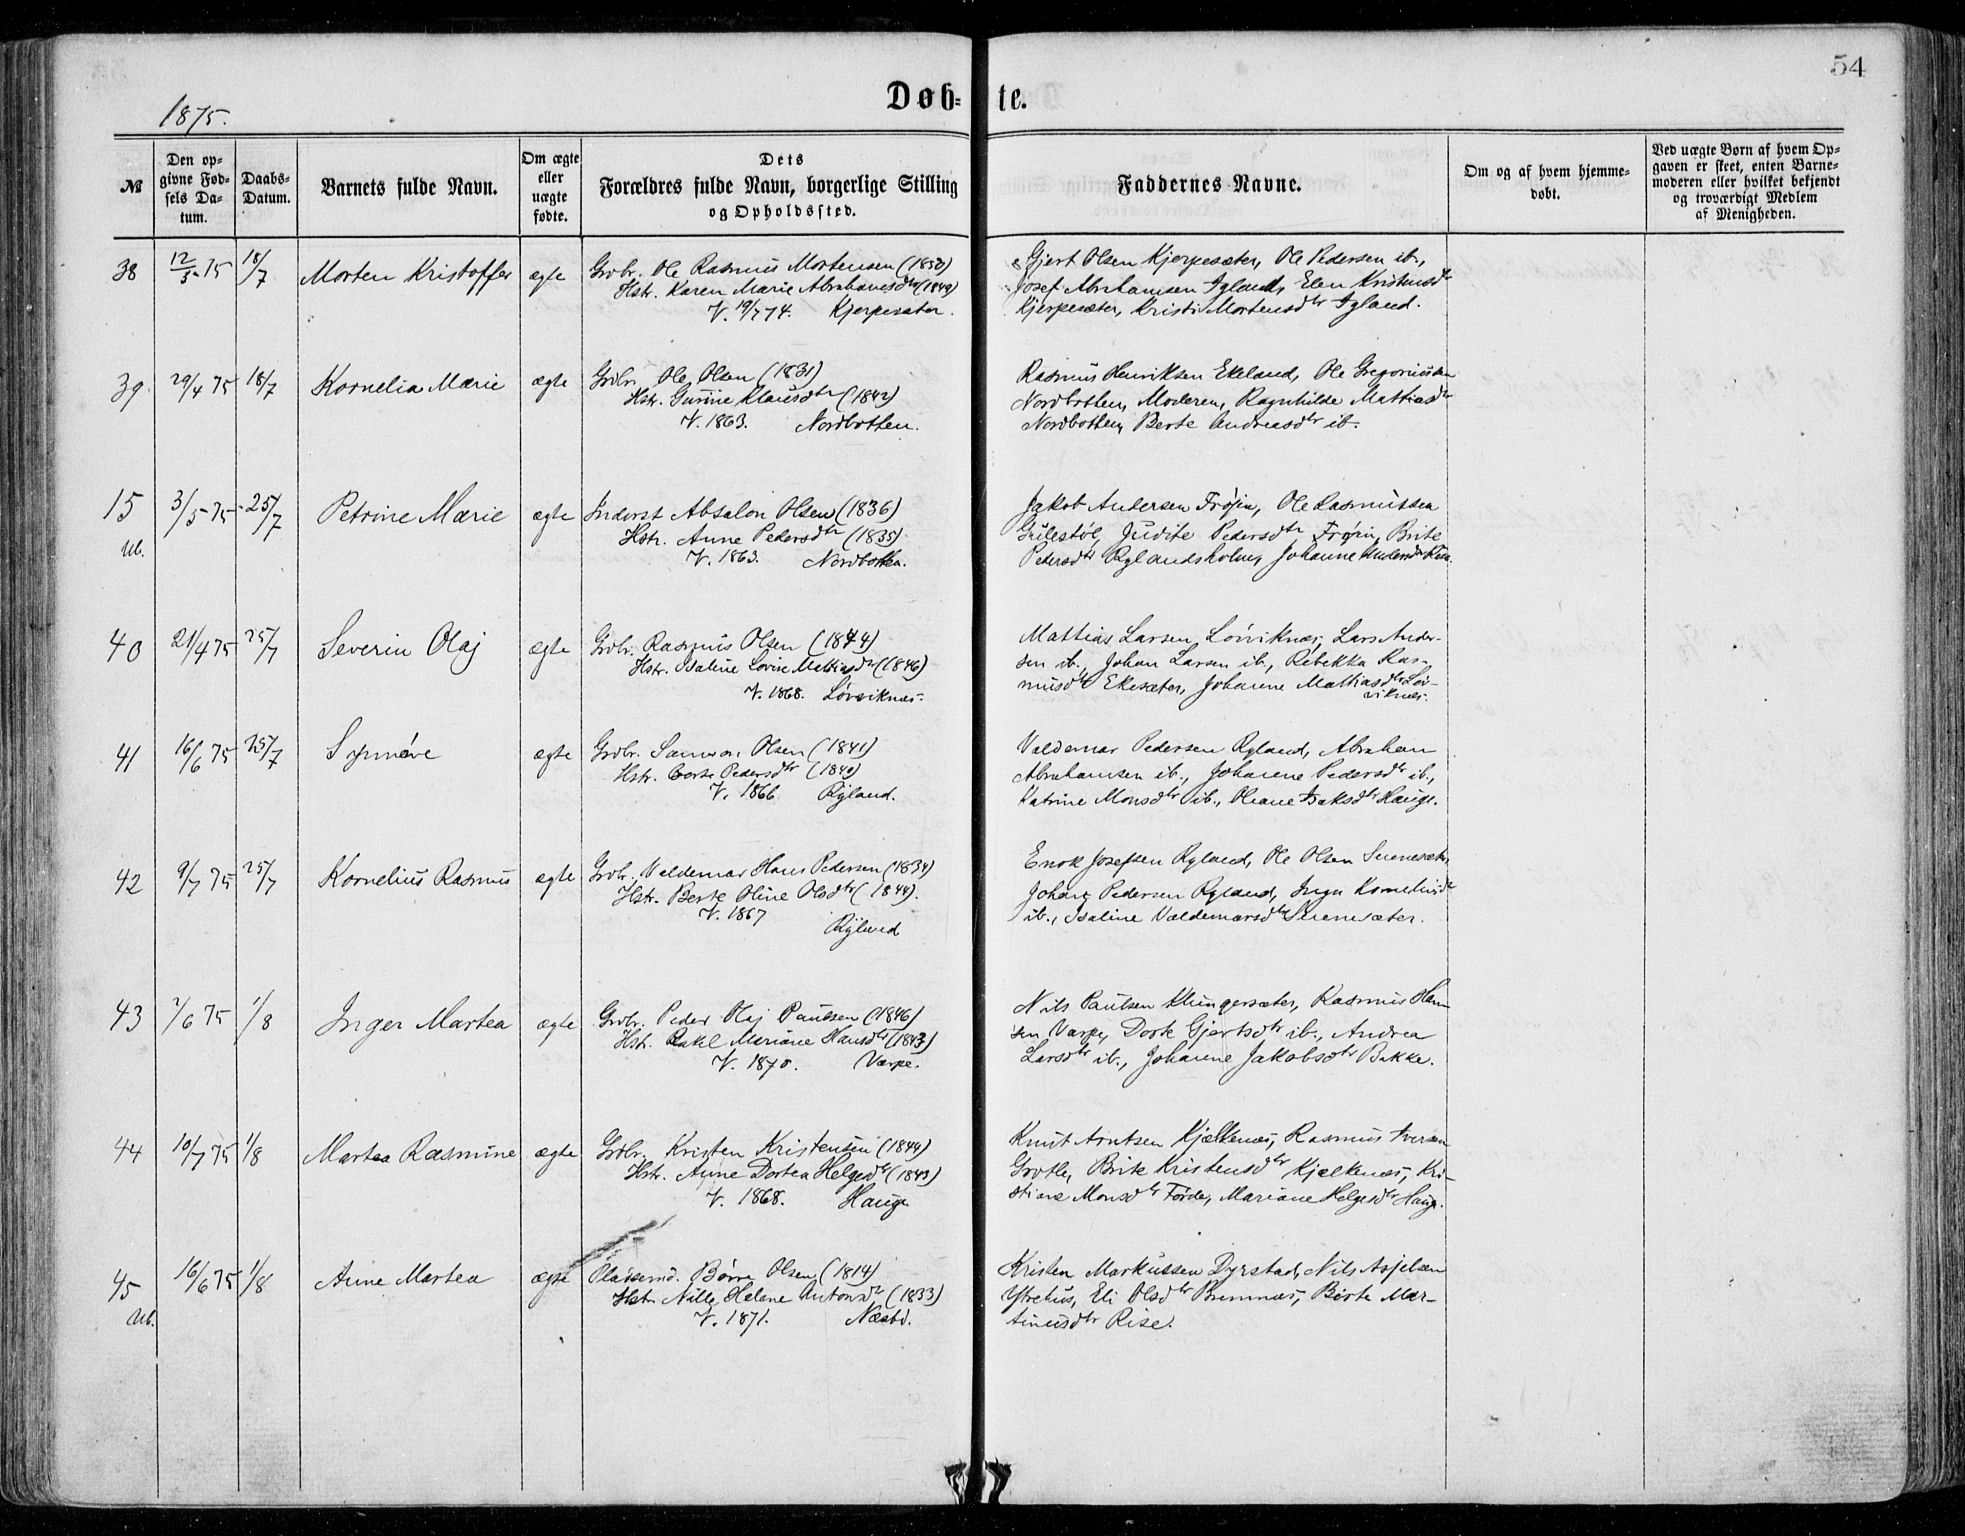 54
Døb= te.
1875.
№
Den op=
givne Fød=
sels Da=
tum.
Daabs=
Datum.
Barnets fulde Navn.
Om ægte
eller
uægte
fødte.
Dets
Forældres fulde Navn, borgerlige Stilling
og Opholdssted.
Faddernes Navne.
Om og af hvem hjemme=
døbt.
Ved uægte Børn af hvem Op=
gaven er skeet, enten Barne=
moderen eller hvilket bekjendt
og troværdigt Medlem
af Menigheden.
38 12/5 75 18/7 Morten Kristoffer ægte Grdbr. Ole Rasmus Mortensen (1850)
Hstr. Karen Marie Abrahamsdtr (1849)
V. 19/7 74. Kjerpesæter.
Gjert Olsen Kjerpesæter, Ole Pedersen ib.,
Josef Abrahamsen Igland, Elen Kristensdtr
Kjerpesæter, Kristi Mortensdtr Igland.
39 29/4 75 18/7 Kornelia Marie ægte Grdbr. Ole Olsen (1831)
Hstr. Gurine Klausdtr (1842)
V. 1863. Nordbotten.
Rasmus Henriksen Ekeland, Ole Gregoriussen
Nordbotten, Moderen, Ragnhilde Mattiasdtr
Nordbotten, Berte Andreasdtr ib.
15 3/5 75 25/7 Petrine Marie ægte Inderst Absalon Olsen (1836)
Ub. Hstr. Anne Pedersdtr (1835)
V. 1863. Nordbotten.
Jakob Andersen Frøjen, Ole Rasmussen
Gulestøl, Judite Pedersdtr Frøjen, Brite
Pedersdtr Rylandsholm, Johanne Andersdtr
40 21/4 75 25/7 Severin Olaj ægte Grdbr. Rasmus Olsen (1844)
Hstr. Isaline Lovise Mattiasdtr (1846)
V. 1868. Løviknæs.
Mattias Larsen Løviknæs, Lars Ander-
sen ib., Johan Larsen ib., Rebekka Ras-
musdtr Ekesæter, Johanne Mattiasdtr Løv-
viknæs.
41 16/6 75 25/7 Synnøve ægte Grdbr. Samson Olsen (1841)
Hstr. Pedersdtr (1840)
V. 1866. Ryland.
Valdemar Pedersen Ryland, Abraham
Abrahamsen ib., Johanne Pedersdtr ib.,
Katrine Monsdtr ib., Oliane Isaksdtr Hauge.
42 9/7 75 25/7 Kornelius Rasmus ægte Grdbr. Valdemar Hans Pedersen (1834)
Hstr. Berte Oline Olsdtr (1844).
V. 1867
Ryland
Enok Josefsen Ryland, Ole Olsen
Johan Pedersen Ryland, Inga Korneliusdtr
ib., Isaline Valdemarsdtr
43 2/6 75 1/8 Inger Martea ægte Grdbr. Peder Olaj Paulsen (1846)
Hstr. Rakel Mariane Hansdtr (1843)
V. 1870. Varpe.
Nils Paulsen Klungersæter, Rasmus Han-
sen Varpe, Dorte Gjertsdtr ib., Andrea
Larsdtr ib., Johanne Jakobsdtr Bakke.
44 10/7 75 1/8 Martea Rasmine ægte Grdbr. Kristen Kristensen (1844)
Hstr. Anne Dortea Helgesdtr (1843)
V. 1868. Hauge
Knut Arntsen Kjelkenæs, Rasmus Iversen
Grotle, Brite Kristensdtr Kjelkenæs, Kri-
stiane Monsdtr Førde, Mariane Helgesdtr Hauge.
45 16/6 75 1/8 Anne Martea ægte Pladsemd. Børre Olsen (1814)
Ub. Hstr. Nille Helene Antonsdtr (1833)
V. 1871. Næsbd.
Kristen Markussen Dyrstad, Nils Asjelsen
Ytrehus, Eli Olsdtr Bremnæs, Berte Mar-
tinusdtr Rise.